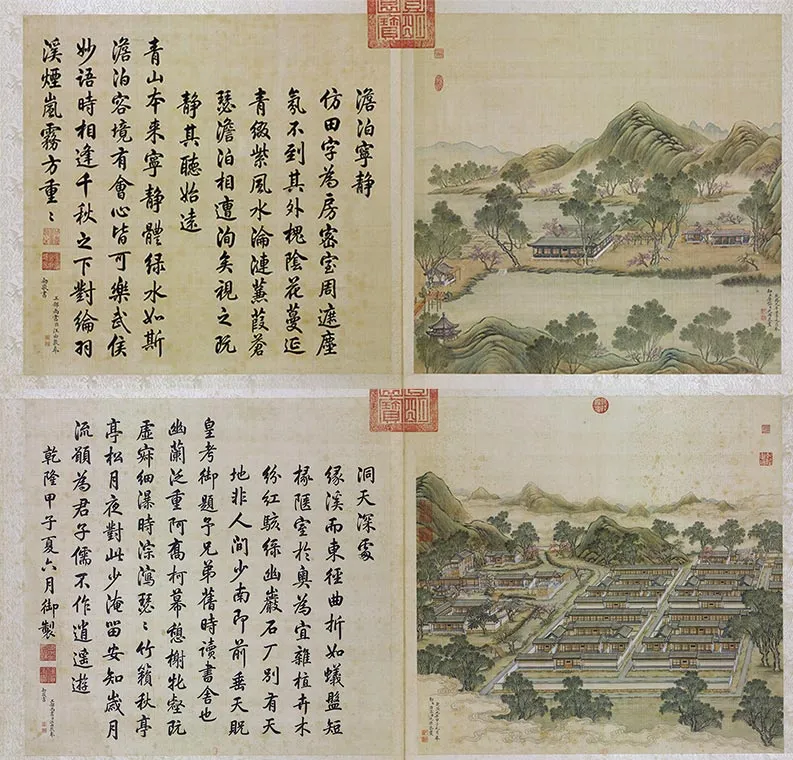 澹泊寧靜
仿田字為房密室周遮塵
氛不到其外槐陰花蔓延
青綴紫風水淪漣蒹葭蒼
瑟澹泊相遭洵矣視之既
靜其聽始遠
青山本來寧靜體綠水如斯
澹泊容境有會心皆可樂武侯
妙語時相逢千秋之下對綸羽
溪煙嵐霧方重〻
工部尚書臣汪由敦奉
勅敬書
洞天深處
緣溪而東徑曲折如蟻盤短
椽陋室於奧為宜雜植卉木
紛紅駭綠幽巖石厂別有天
地非人間少南即前垂天貺
皇考御題予兄弟舊時讀書舍也
幽蘭泛重阿喬柯幕憩榭牝壑既
虛寂細瀑時淙瀉瑟〻竹籟秋亭
亭松月夜對此少淹留安知歲月
流願為君子儒不作逍遙遊
乾隆甲子夏六月御製
工部尚書臣汪由敦奉
勅敬書